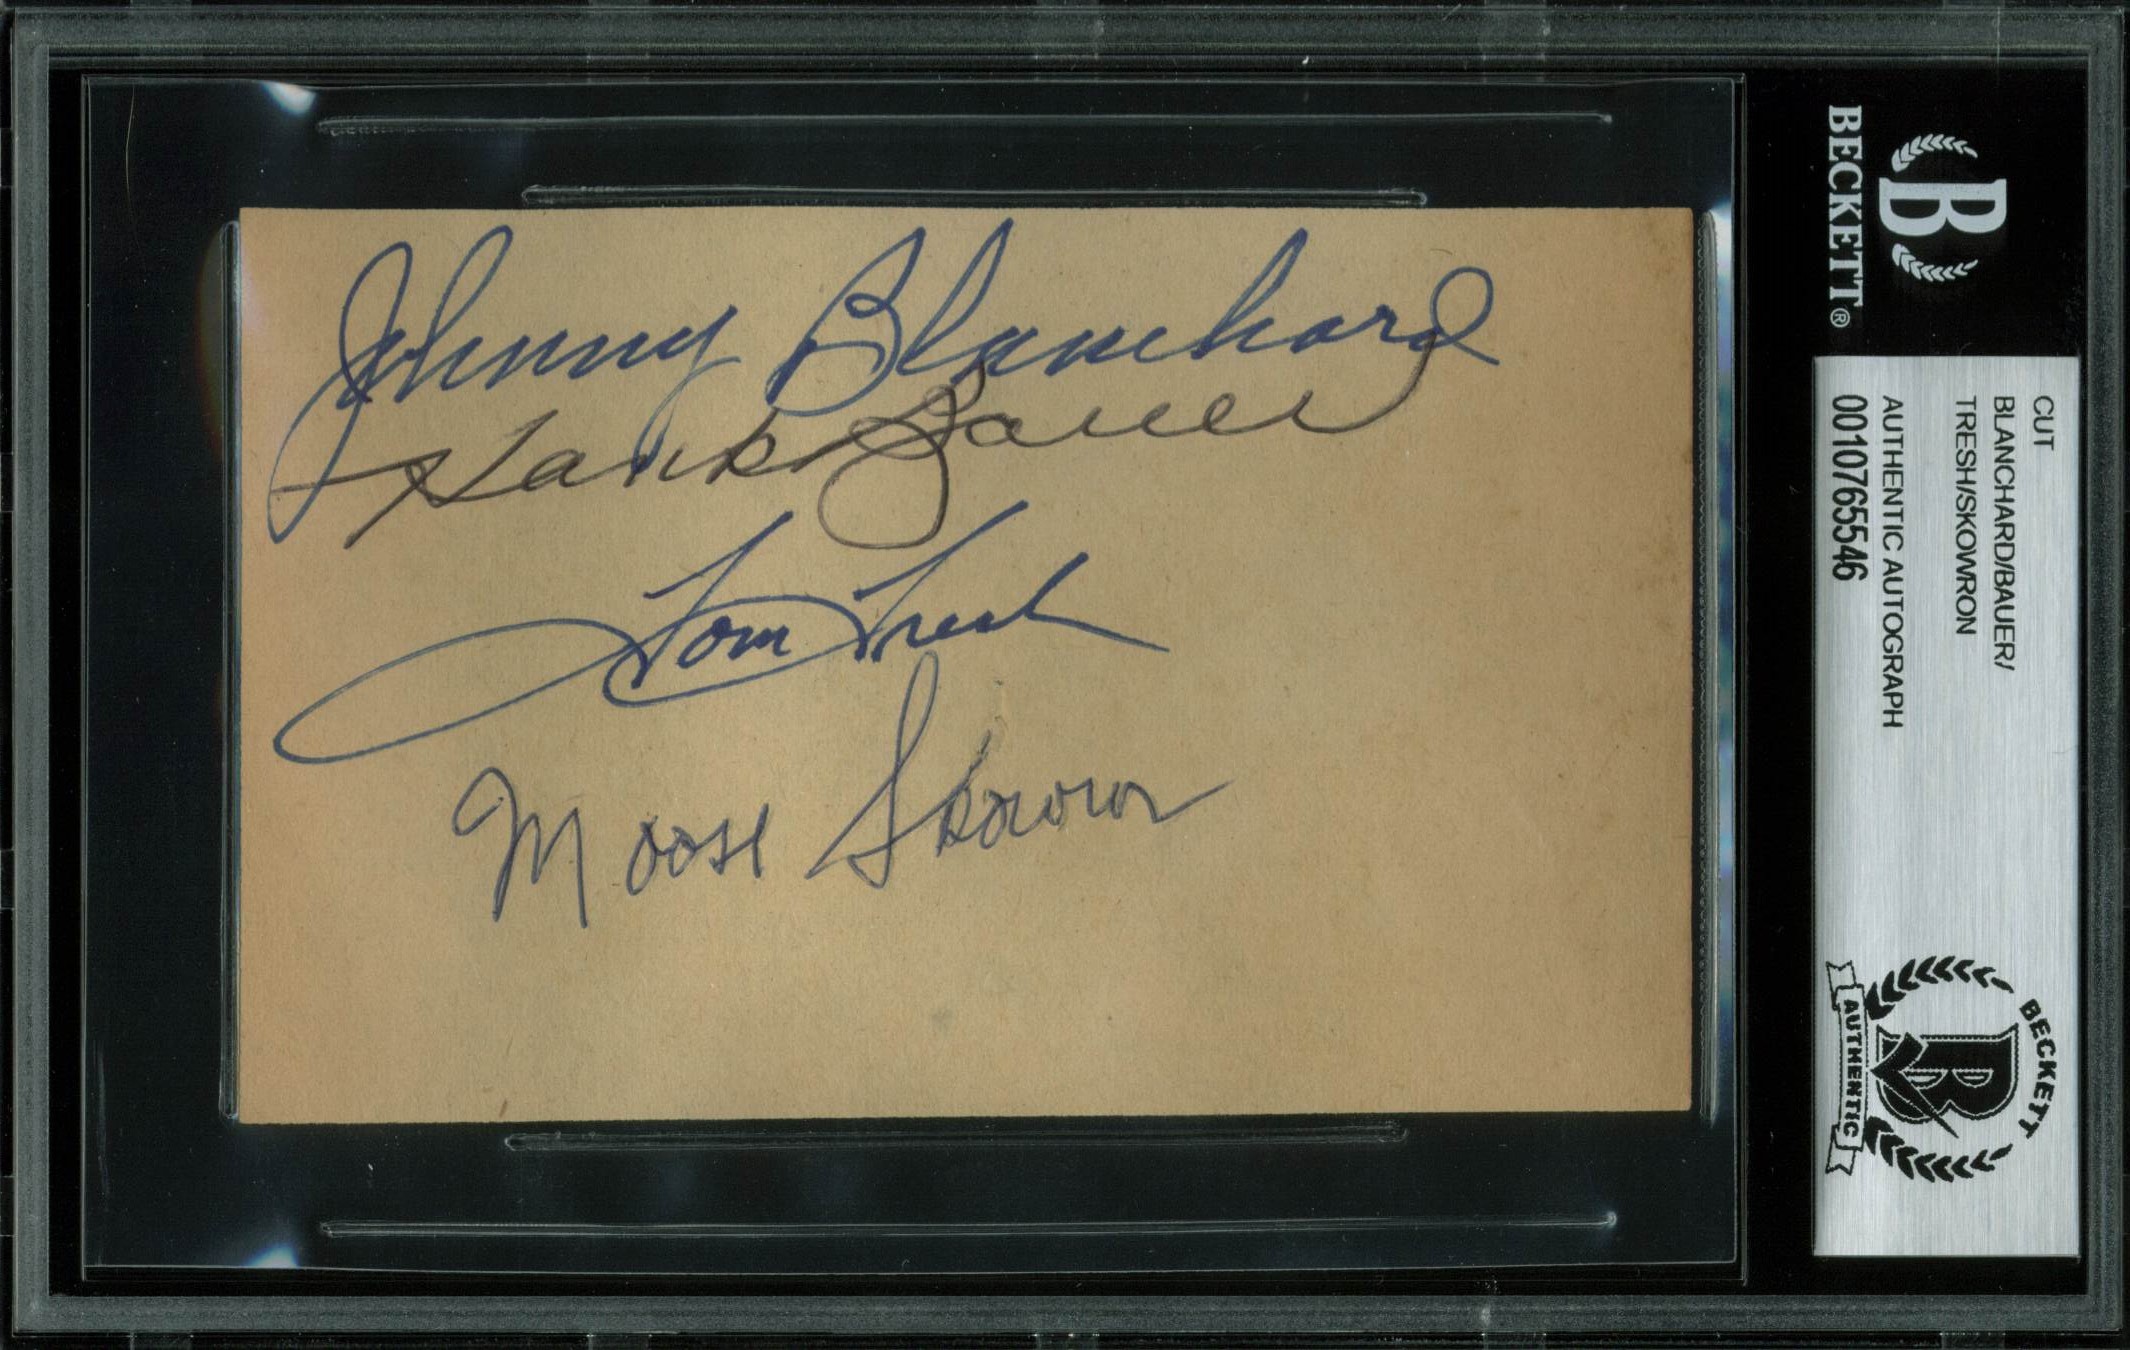 Johnny Blanchard
Hank Bauer
Tom Tresh
Moose Skowron
B
BECKETT®
CUT
BLANCHARD/BAUER/
TRESH/SKOWRON
AUTHENTIC AUTOGRAPH
0010765546
BECKETT
B
AUTHENTIC